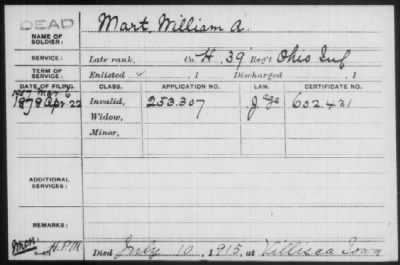 DEAD
NAME OF SOLDIER: Mart, William A.
SERVICE: Late rank, Co. H. 39 Reg't Ohio Inf
TERM OF SERVICE: Enlisted , 1 Discharged , 1
DATE OF FILING. CLASS. APPLICATION NO. LAW. CERTIFICATE NO.
1907 Mar 6
1879 Apr. 22 Invalid, 253.307 J 602.431
Widow,
Minor,
ADDITIONAL SERVICES:
REMARKS:
H.P.M
Died July 10, 1915, at Villisca Iowa